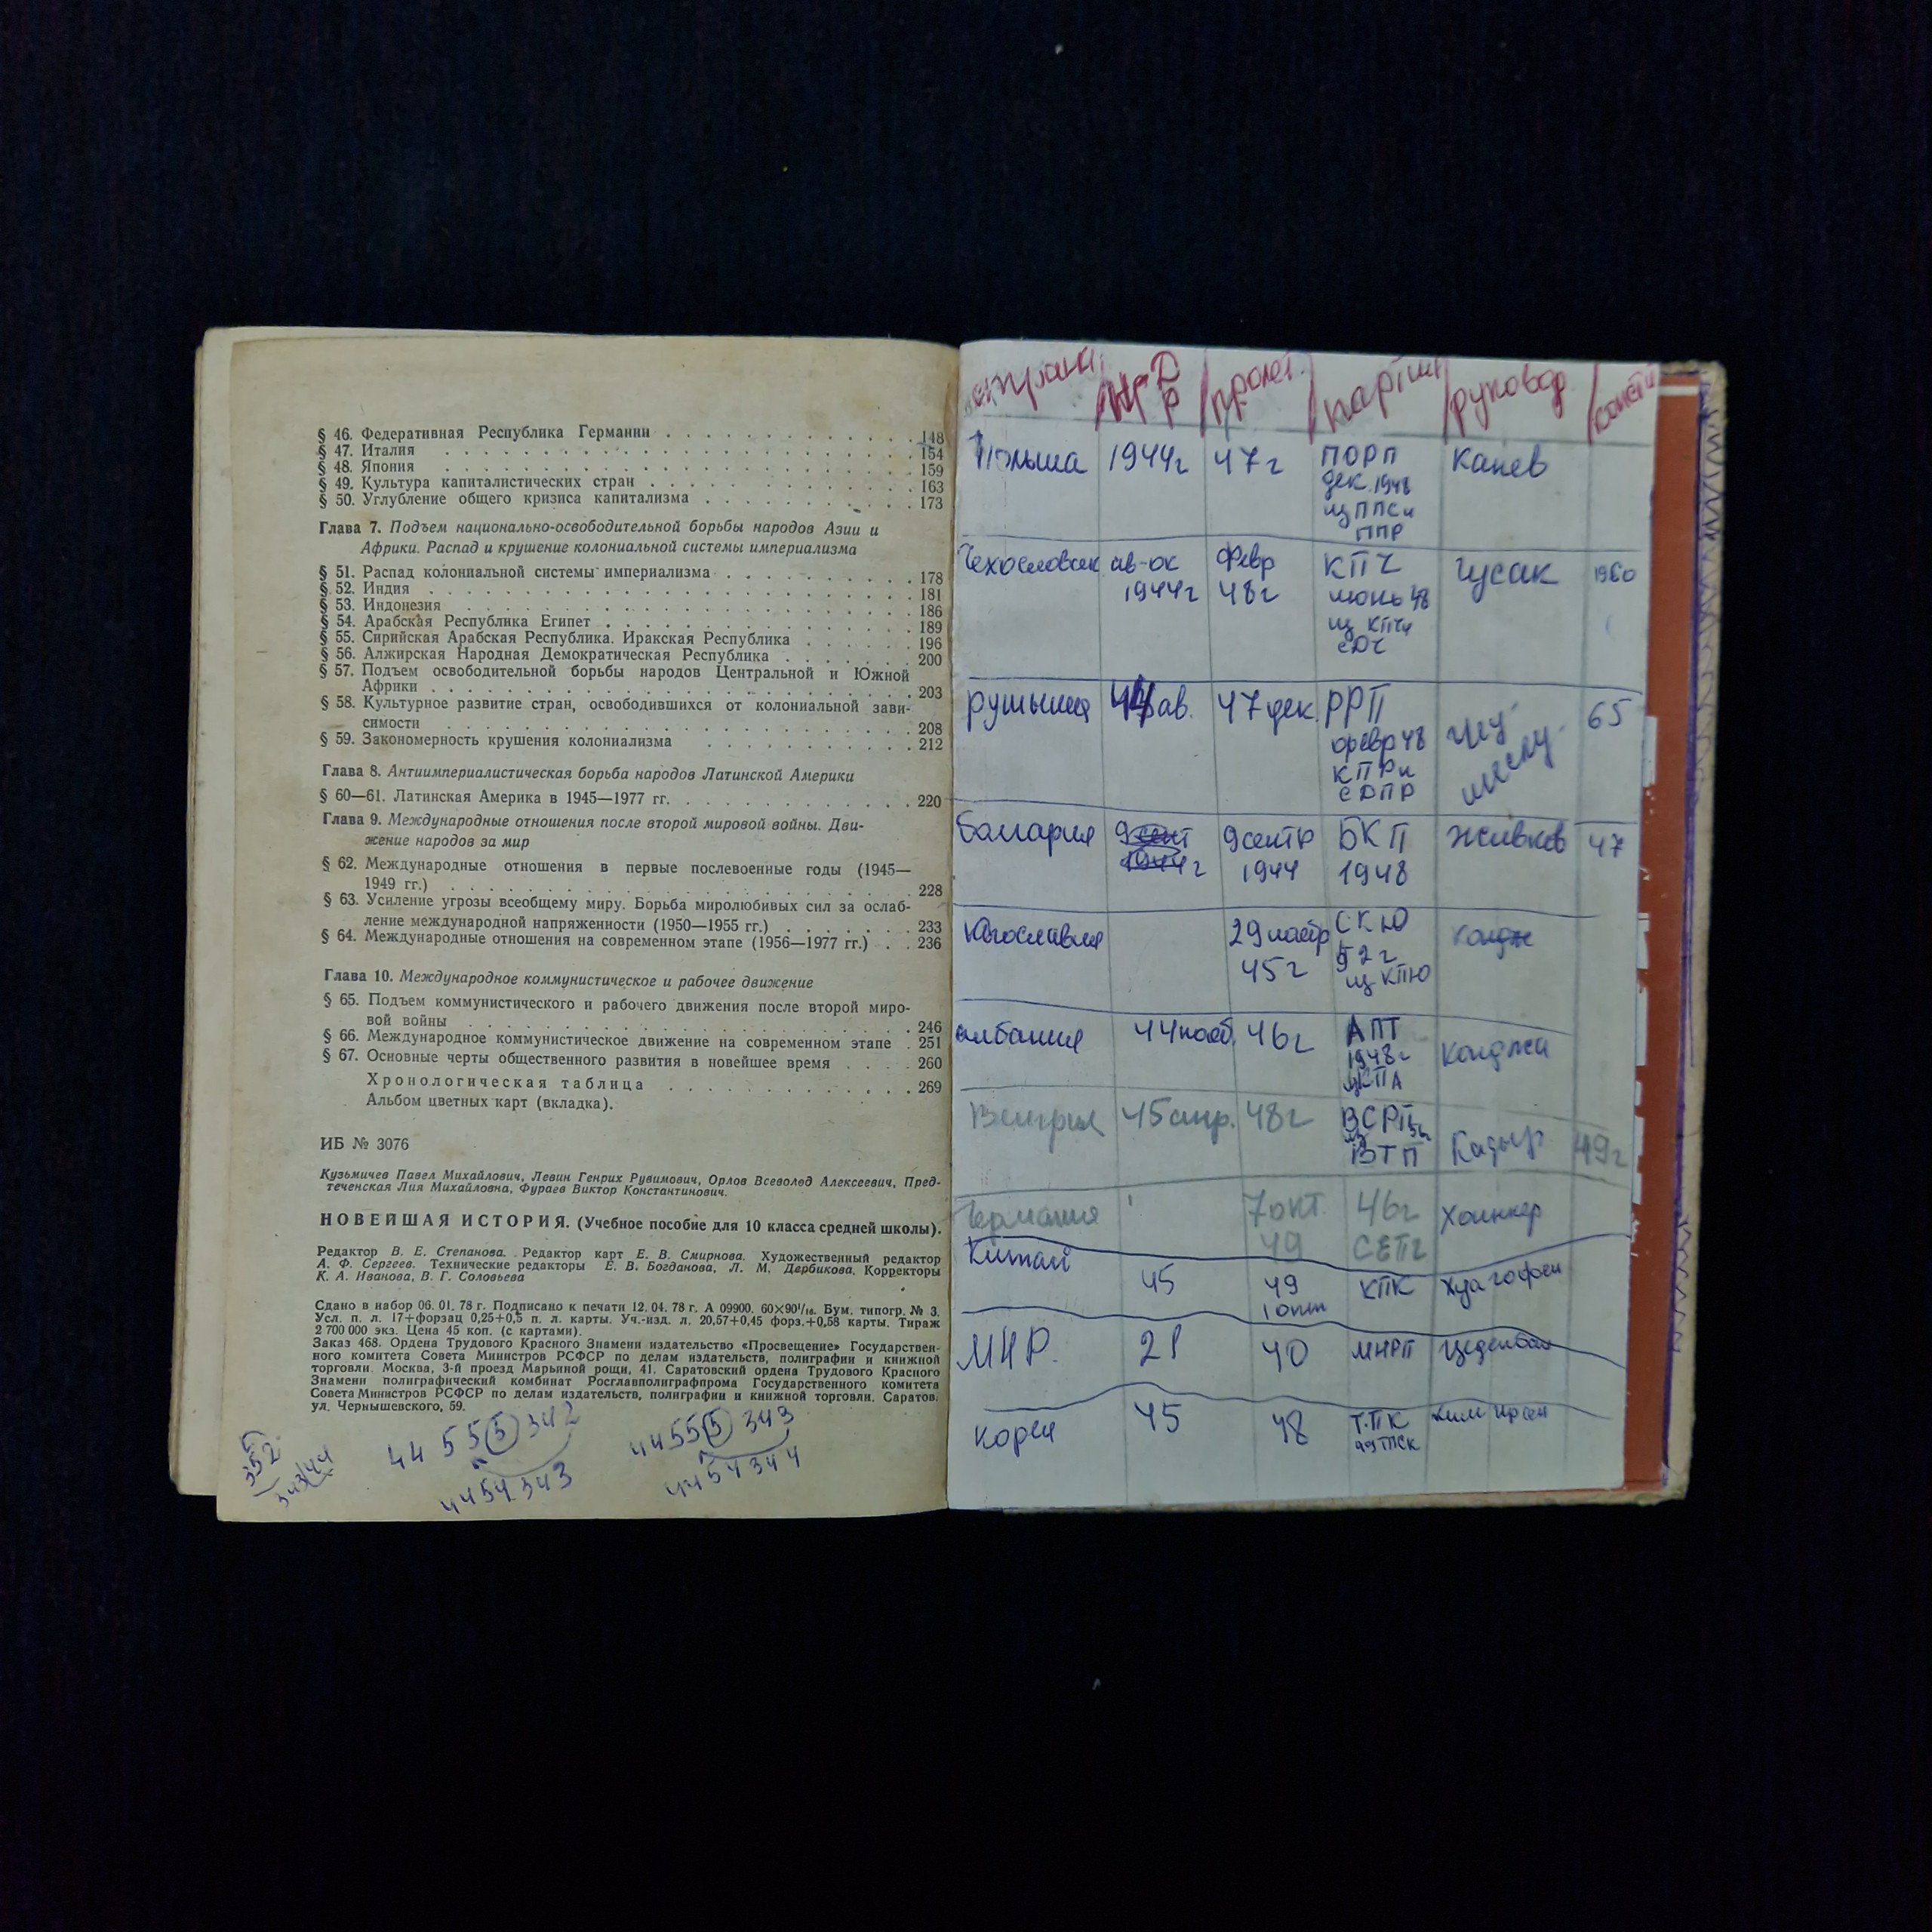 § 46. Федеративная Республика Германии . . . . . . . . . . . . . 148
§ 47. Италия . . . . . . . . . . . . . 154
§ 48. Япония . . . . . . . . . . . . . 159
§ 49. Культура капиталистических стран . . . . . . . . . . . . . 163
§ 50. Углубление общего кризиса капитализма . . . . . . . . . . 173
Глава 7. Подъем национально-освободительной борьбы народов Азии и
Африки. Распад и крушение колониальной системы империализма
§ 51. Распад колониальной системы империализма . . . . . . . . . 178
§ 52. Индия . . . . . . . . . . . . . 181
§ 53. Индонезия . . . . . . . . . . . . . 186
§ 54. Арабская Республика Египет . . . . . . . . . . . . . 189
§ 55. Сирийская Арабская Республика. Иракская Республика . . . . . 196
§ 56. Алжирская Народная Демократическая Республика . . . . . . 200
§ 57. Подъем освободительной борьбы народов Центральной и Южной
Африки . . . . . . . . . . . . . 203
§ 58. Культурное развитие стран, освободившихся от колониальной зави-
симости . . . . . . . . . . . . . 208
§ 59. Закономерность крушения колониализма . . . . . . . . . . 212
Глава 8. Антиимпериалистическая борьба народов Латинской Америки
§ 60—61. Латинская Америка в 1945—1977 гг. . . . . . . . . . . . . 220
Глава 9. Международные отношения после второй мировой войны. Дви-
жение народов за мир
§ 62. Международные отношения в первые послевоенные годы (1945—
1949 гг.) . . . . . . . . . . . . . 228
§ 63. Усиление угрозы всеобщему миру. Борьба миролюбивых сил за ослаб-
ление международной напряженности (1950—1955 гг.) . . . . . . . 233
§ 64. Международные отношения на современном этапе (1956—1977 гг.) . . 236
Глава 10. Международное коммунистическое и рабочее движение
§ 65. Подъем коммунистического и рабочего движения после второй миро-
вой войны . . . . . . . . . . . . . 246
§ 66. Международное коммунистическое движение на современном этапе . 251
§ 67. Основные черты общественного развития в новейшее время . . . . 260
Хронологическая таблица . . . . . . . . . . . . . 269
Альбом цветных карт (вкладка).
ИБ № 3076
Кузьмичев Павел Михайлович, Левин Генрих Рувимович, Орлов Всеволод Алексеевич, Пред-
теченская Лия Михайловна, Фураев Виктор Константинович.
НОВЕЙШАЯ ИСТОРИЯ. (Учебное пособие для 10 класса средней школы).
Редактор В. Е. Степанова. Редактор карт Е. В. Смирнова. Художественный редактор
А. Ф. Сергеев. Технические редакторы Е. В. Богданова, Л. М. Дербикова. Корректоры
К. А. Иванова, В. Г. Соловьева
Сдано в набор 06. 01. 78 г. Подписано к печати 12. 04. 78 г. А 09900. 60×90¹/₁₆. Бум. типогр. № 3.
Усл. п. л. 17+форзац 0,25+0,5 п. л. карты. Уч.-изд. л. 20,57+0,45 форз.+0,58 карты. Тираж
2 700 000 экз. Цена 45 коп. (с картами).
Заказ 468. Ордена Трудового Красного Знамени издательство «Просвещение» Государствен-
ного комитета Совета Министров РСФСР по делам издательств, полиграфии и книжной
торговли. Москва, 3-й проезд Марьиной рощи, 41. Саратовский ордена Трудового Красного
Знамени полиграфический комбинат Росглавполиграфпрома Государственного комитета
Совета Министров РСФСР по делам издательств, полиграфии и книжной торговли. Саратов,
ул. Чернышевского, 59.
44 55 5 342
4454343
4455 5 343
4454344
352
343/44
НДР пролет. партии руковод. конст
Польша 1944г 47г ПОРП Канев
дек. 1948
из ППС и
ППР
Чехословак ав-ок Февр КПЧ Гусак 1960
1944г 48г июнь 48
из КПЧ и
СДЧ
Румыния 44 ав. 47 дек. РРП Чау- 65
февр 48 шеску.
КПР и
СДПР
Болгария 9 сент 9 сентр БКП Живков 47
1944г 1944 1948
Югославия 29 нояб СКЮ
45г 52г
из КПЮ
албания 44 нояб. 46г АПТ Ходжа
1948г
из КПА
Венгрия 45 апр. 48г ВСРП Кадыр 49г
из
ВТП
Германия 7 окт. 46г Хоннкер
49 СЕПГ
Китай 45 49 КПК Хуа гофен
1 окт
МНР. 21 40 МНРП Цеденбал
Корея 45 48 Т.ПК Ким ирсен
49 ТПСК